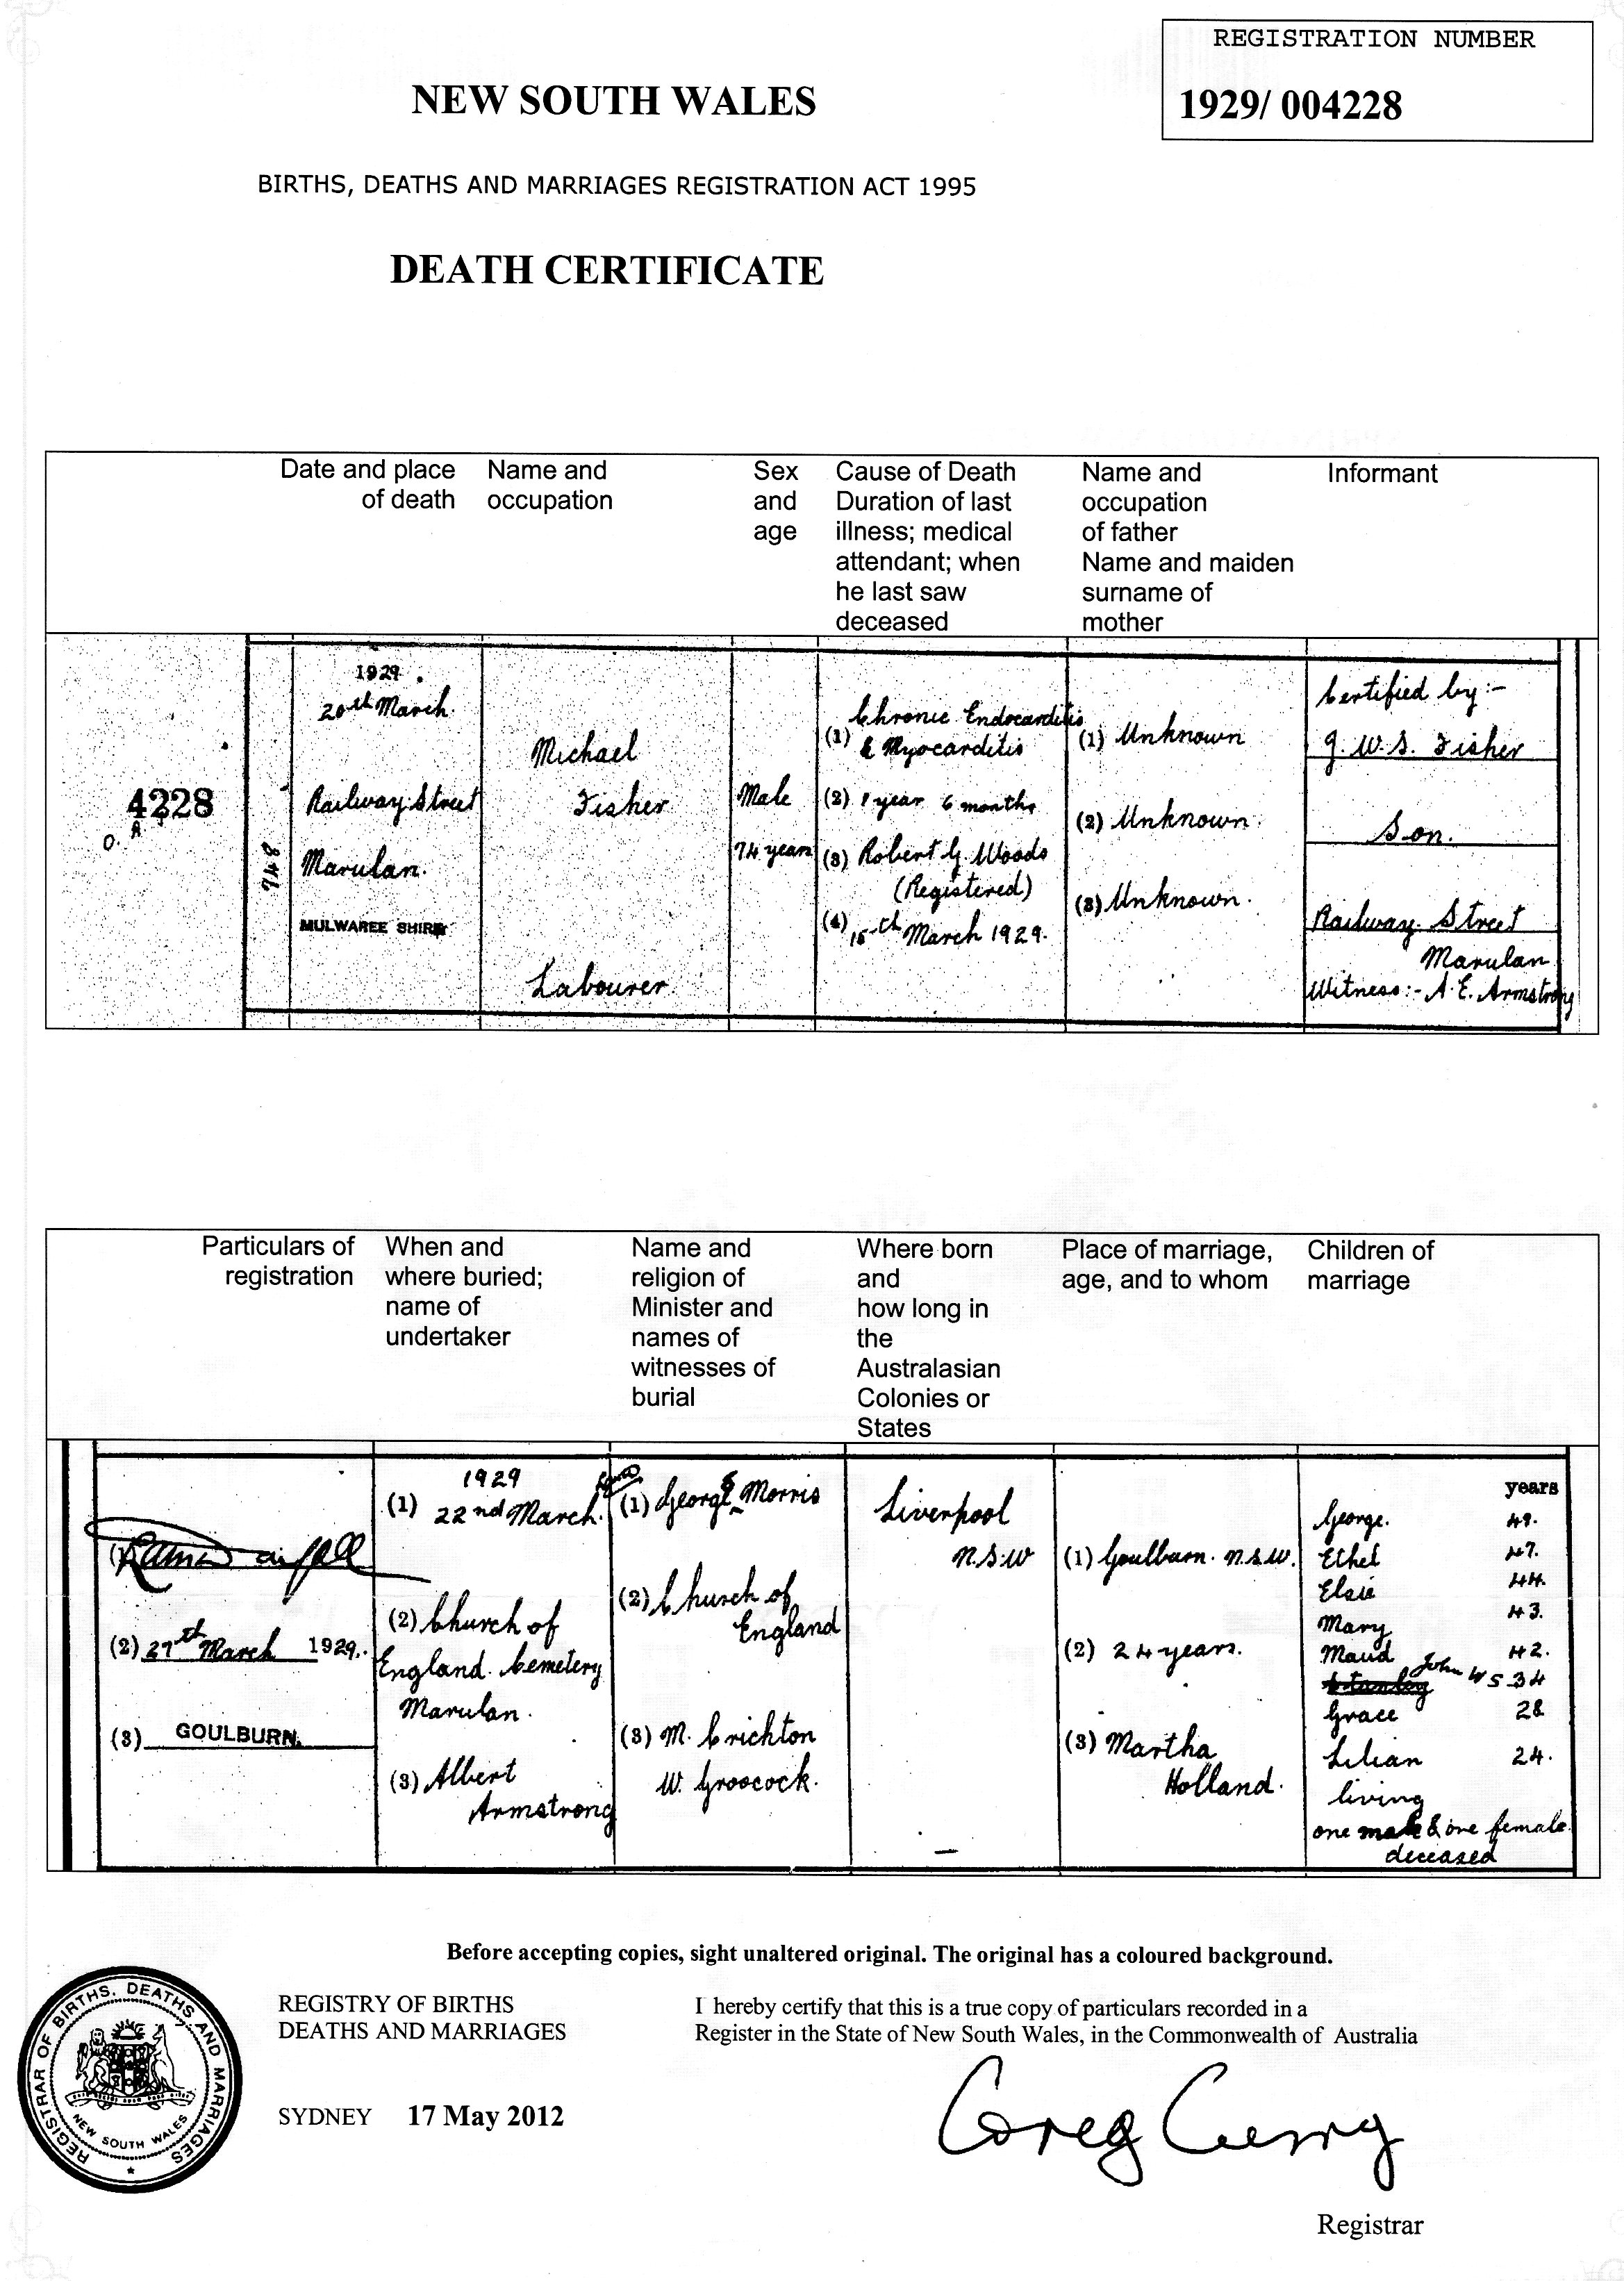 REGISTRATION NUMBER
1929/ 004228
NEW SOUTH WALES
BIRTHS, DEATHS AND MARRIAGES REGISTRATION ACT 1995
DEATH CERTIFICATE
Date and place
of death
Name and
occupation
Sex
and
age
Cause of Death
Duration of last
illness; medical
attendant; when
he last saw
deceased
Name and
occupation
of father
Name and maiden
surname of
mother
Informant
4228
O. A
846
1929.
20th March.
Railway Street
Marulan.
MULWAREE SHIRE
Michael
Fisher
Labourer
Male
74 years
(1) Chronic Endocarditis
& Myocarditis
(2) 1 year 6 months
(3) Robert G. Woods
(Registered)
(4) 15th March 1929.
(1) Unknown
(2) Unknown.
(3) Unknown.
Certified by:-
J. W. S. Fisher
Son.
Railway Street
Marulan
Witness:- A. E. Armstrong
Particulars of
registration
When and
where buried;
name of
undertaker
Name and
religion of
Minister and
names of
witnesses of
burial
Where born
and
how long in
the
Australasian
Colonies or
States
Place of marriage,
age, and to whom
Children of
marriage
(1)
(2) 27th March 1929.
(3) GOULBURN.
1929
(1) 22nd March.
(2) Church of
England Cemetery
Marulan.
(3) Albert
Armstrong
(1) George Morris
(2) Church of
England
(3) M. Crichton
W. Groocock.
Liverpool
N.S.W
—
(1) Goulburn. N.S.W.
(2) 24 years.
(3) Martha
Holland.
years
George. 49.
Ethel 47.
Elsie 44.
Mary 43.
Maud 42.
Stanley John W S 34
Grace 28
Lilian 24.
living
one male & one female
deceased
Before accepting copies, sight unaltered original. The original has a coloured background.
REGISTRAR OF BIRTHS, DEATHS AND MARRIAGES
NEW SOUTH WALES
REGISTRY OF BIRTHS
DEATHS AND MARRIAGES
SYDNEY 17 May 2012
I hereby certify that this is a true copy of particulars recorded in a
Register in the State of New South Wales, in the Commonwealth of Australia
Greg Curry
Registrar